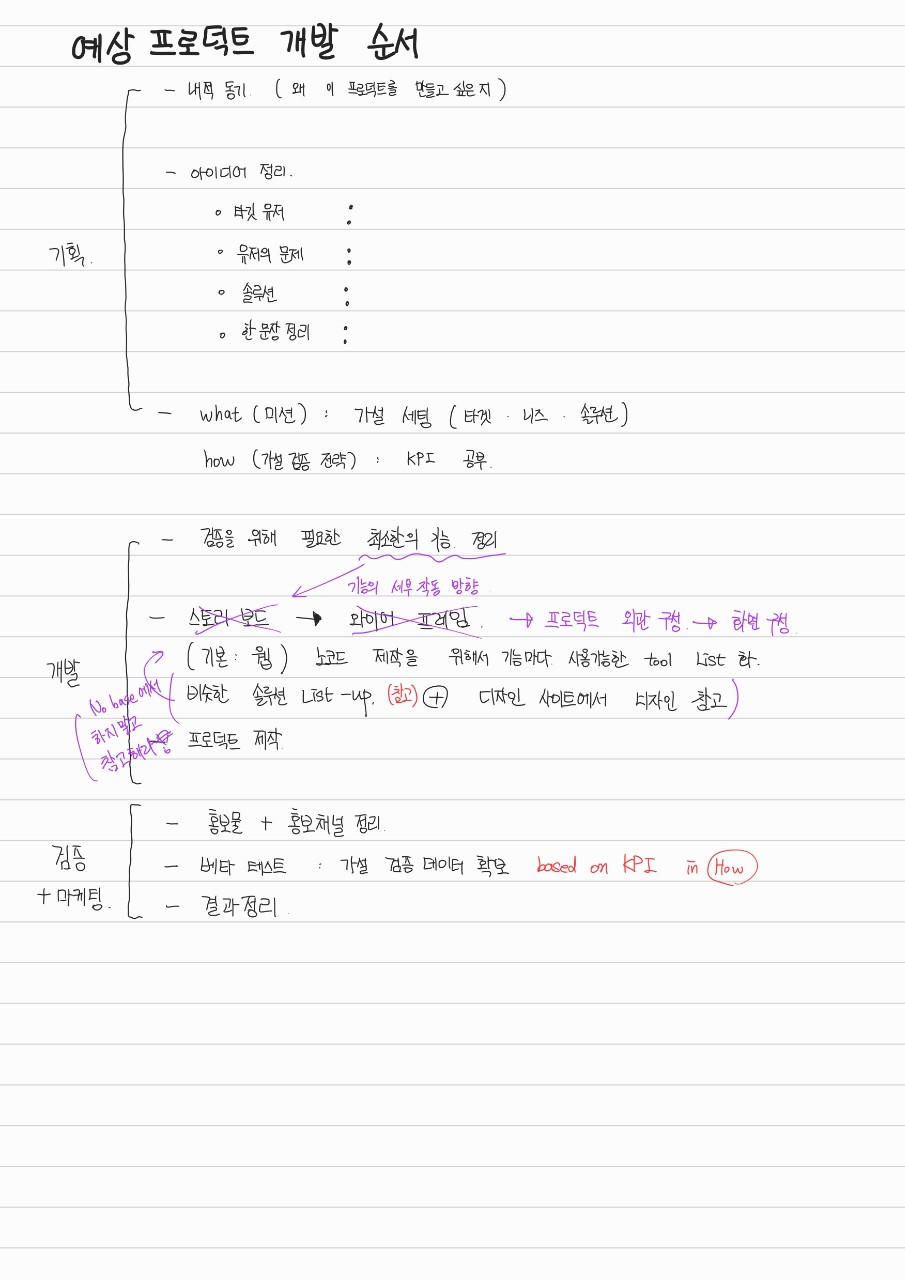 예상 프로덕트 개발 순서
- 내적 동기 (왜 이 프로덕트를 만들고 싶은지)
- 아이디어 정리.
◦ 타깃 유저 :
◦ 유저의 문제 :
◦ 솔루션 :
◦ 한 문장 정리 :
기획.
- what (미션) : 가설 세팅 (타겟 · 니즈 · 솔루션)
how (가설 검증 전략) : KPI 공부.
- 검증을 위해 필요한 최소한의 기능. 정리
기능의 세부 작동 방향
- 스토리 보드 → 와이어 프레임. → 프로덕트 외관 구성. → 화면 구성.
(기본 : 웹) 노코드 제작을 위해서 기능마다 사용가능한 tool List 화.
개발
비슷한 솔루션 List-up. (참고) + 디자인 사이트에서 디자인 참고)
(No base에서
하지말고
참고해라
프로덕트 제작.
- 홍보물 + 홍보채널 정리.
검증
+ 마케팅.
- 베타 테스트 : 가설 검증 데이터 확보 based on KPI in How
- 결과정리.